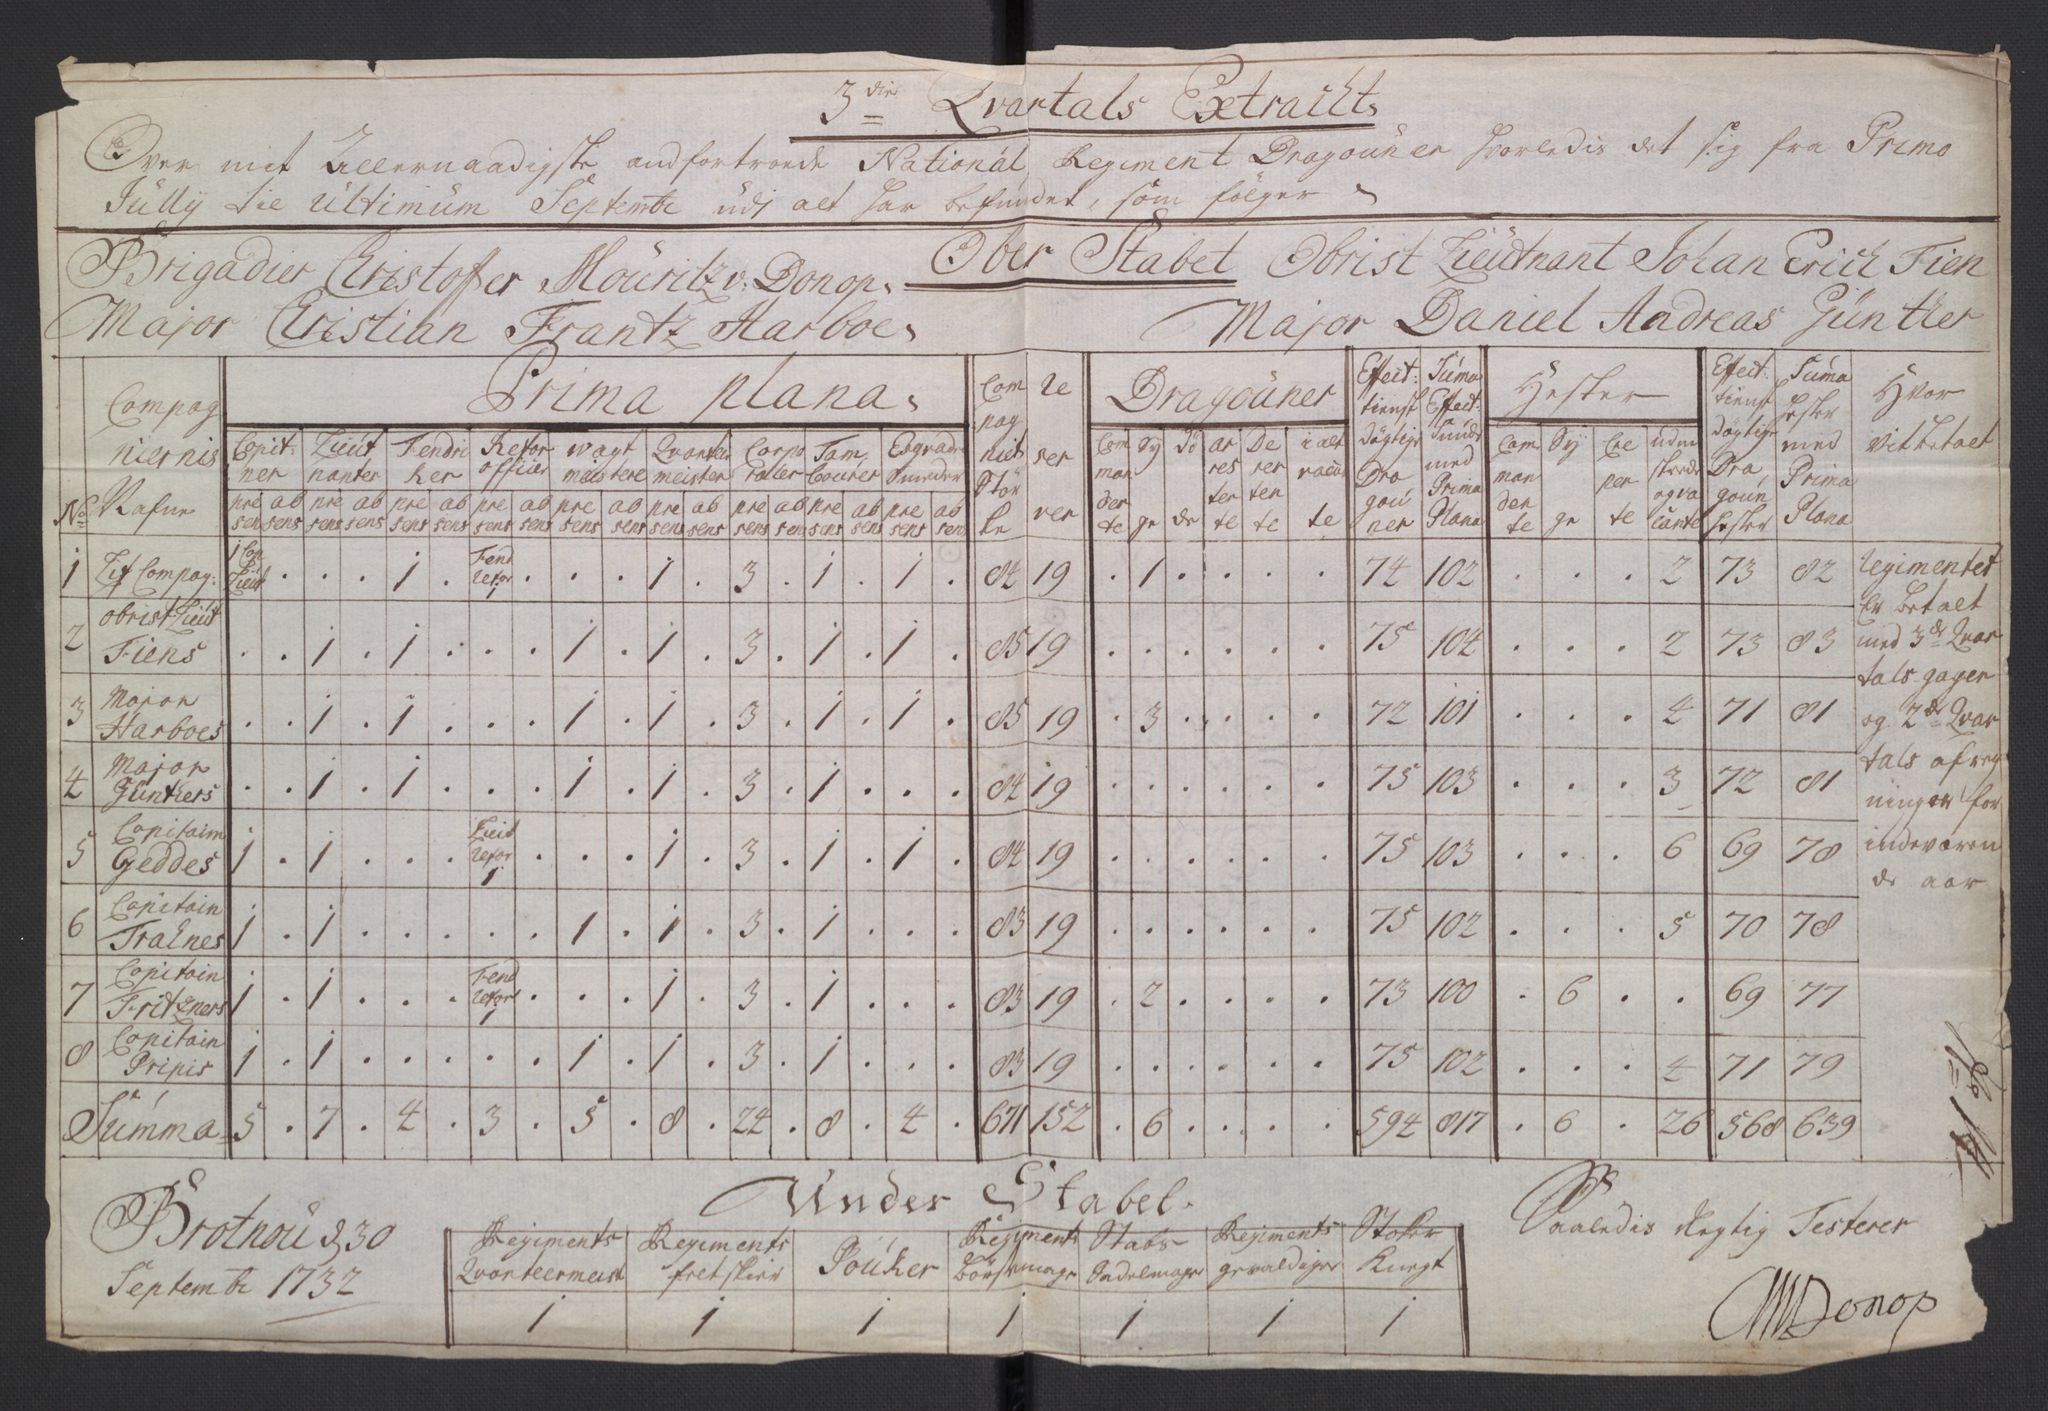 3die Qvartals Extracht
Over mit Allernaadigste andfortroede National Regiment Dragouner hvorledis det sig fra Primo
Jully til Ultimum Septembr udj alt har befundet, som følger
Ober Stabet
Brigadier Cristoffer Mouritz v. Donop. Obrist Lieutnant Johan Erich Fien
Major Cristian Frantz Harboe. Major Daniel Andreas Günther
No Compagniernis Nafne | Prima plana. | Compagniets Störke | Reserver | Dragouner | Effect: tienstdögtige Dragouner | Suma Effect: Munde med Prima Plana | Hester | Effect: tienstdögtige Dragoun hester | Suma hester med Prima Plana | Hvor vit betalt
Capitner | Lieutnanter | Fendricker | Refor officier | Wagtmeistere | Qvarteermeister | Corporaller | Tambourer | Esqvadr Smeder
pre sens | ab sens | pre sens | ab sens | pre sens | ab sens | pre sens | ab sens | pre sens | ab sens | pre sens | ab sens | pre sens | ab sens | pre sens | ab sens | pre sens | ab sens
Commanderte | Syge | Döde | Arresterte | Deserterte | i alt vacante | Commanderte | Syge | Creperte | udmönstrede og vacante
1 Lif Compag: 1 Cap Lieut . . . 1 . Fend Refor 1 . . . 1 . 3 . 1 . 1 . 84 19 . 1 . . . . 74 102 . . . 2 73 82
2 Obrist Lieut Fiens . . 1 . 1 . . . 1 . 1 . 3 . 1 . 1 . 85 19 . . . . . . 75 104 . . . 2 73 83
3 Major Harboes . . 1 . 1 . . . 1 . 1 . 3 . 1 . 1 . 85 19 . 3 . . . . 72 101 . . . 4 71 81
4 Major Günthers . . 1 . 1 . . . 1 . 1 . 3 . 1 . . . 84 19 . . . . . . 75 103 . . . 3 72 81
5 Capitaim Geddes 1 . 1 . . . Lieut Refor 1 . . . 1 . 3 . 1 . 1 . 84 19 . . . . . . 75 103 . . . 6 69 78
6 Capitain Trahnes 1 . 1 . . . . . 1 . 1 . 3 . 1 . . . 83 19 . . . . . . 75 102 . . . 5 70 78
7 Capitain Fritzners 1 . 1 . . . Fend Refor 1 . . . 1 . 3 . 1 . . . 83 19 . 2 . . . . 73 100 . 6 . . 69 77
8 Capitain Pripis 1 . 1 . . . . . 1 . 1 . 3 . 1 . . . 83 19 . . . . . . 75 102 . . . 4 71 79
Summa 5 . 7 . 4 . 3 . 5 . 8 . 24 . 8 . 4 . 671 152 . 6 . . . . 594 817 . 6 . 26 568 639
Regimentet
Er betalt
med 3de Qvar
tals gager
og 2de Qvar
tals afreg
ninger for
indeværen
de aar
Under Stabet.
Brotnou d 30
Septembr 1732
Regiments Qvarteermeist | Regiments feltskier | Pouker | Regiments börsemager | Stabs Sadelmager | Regiments gevaldiger | Stoker Knegt
1 | 1 | 1 | 1 | 1 | 1 | 1
Saaledis Regtig Testerer
CMVDonop